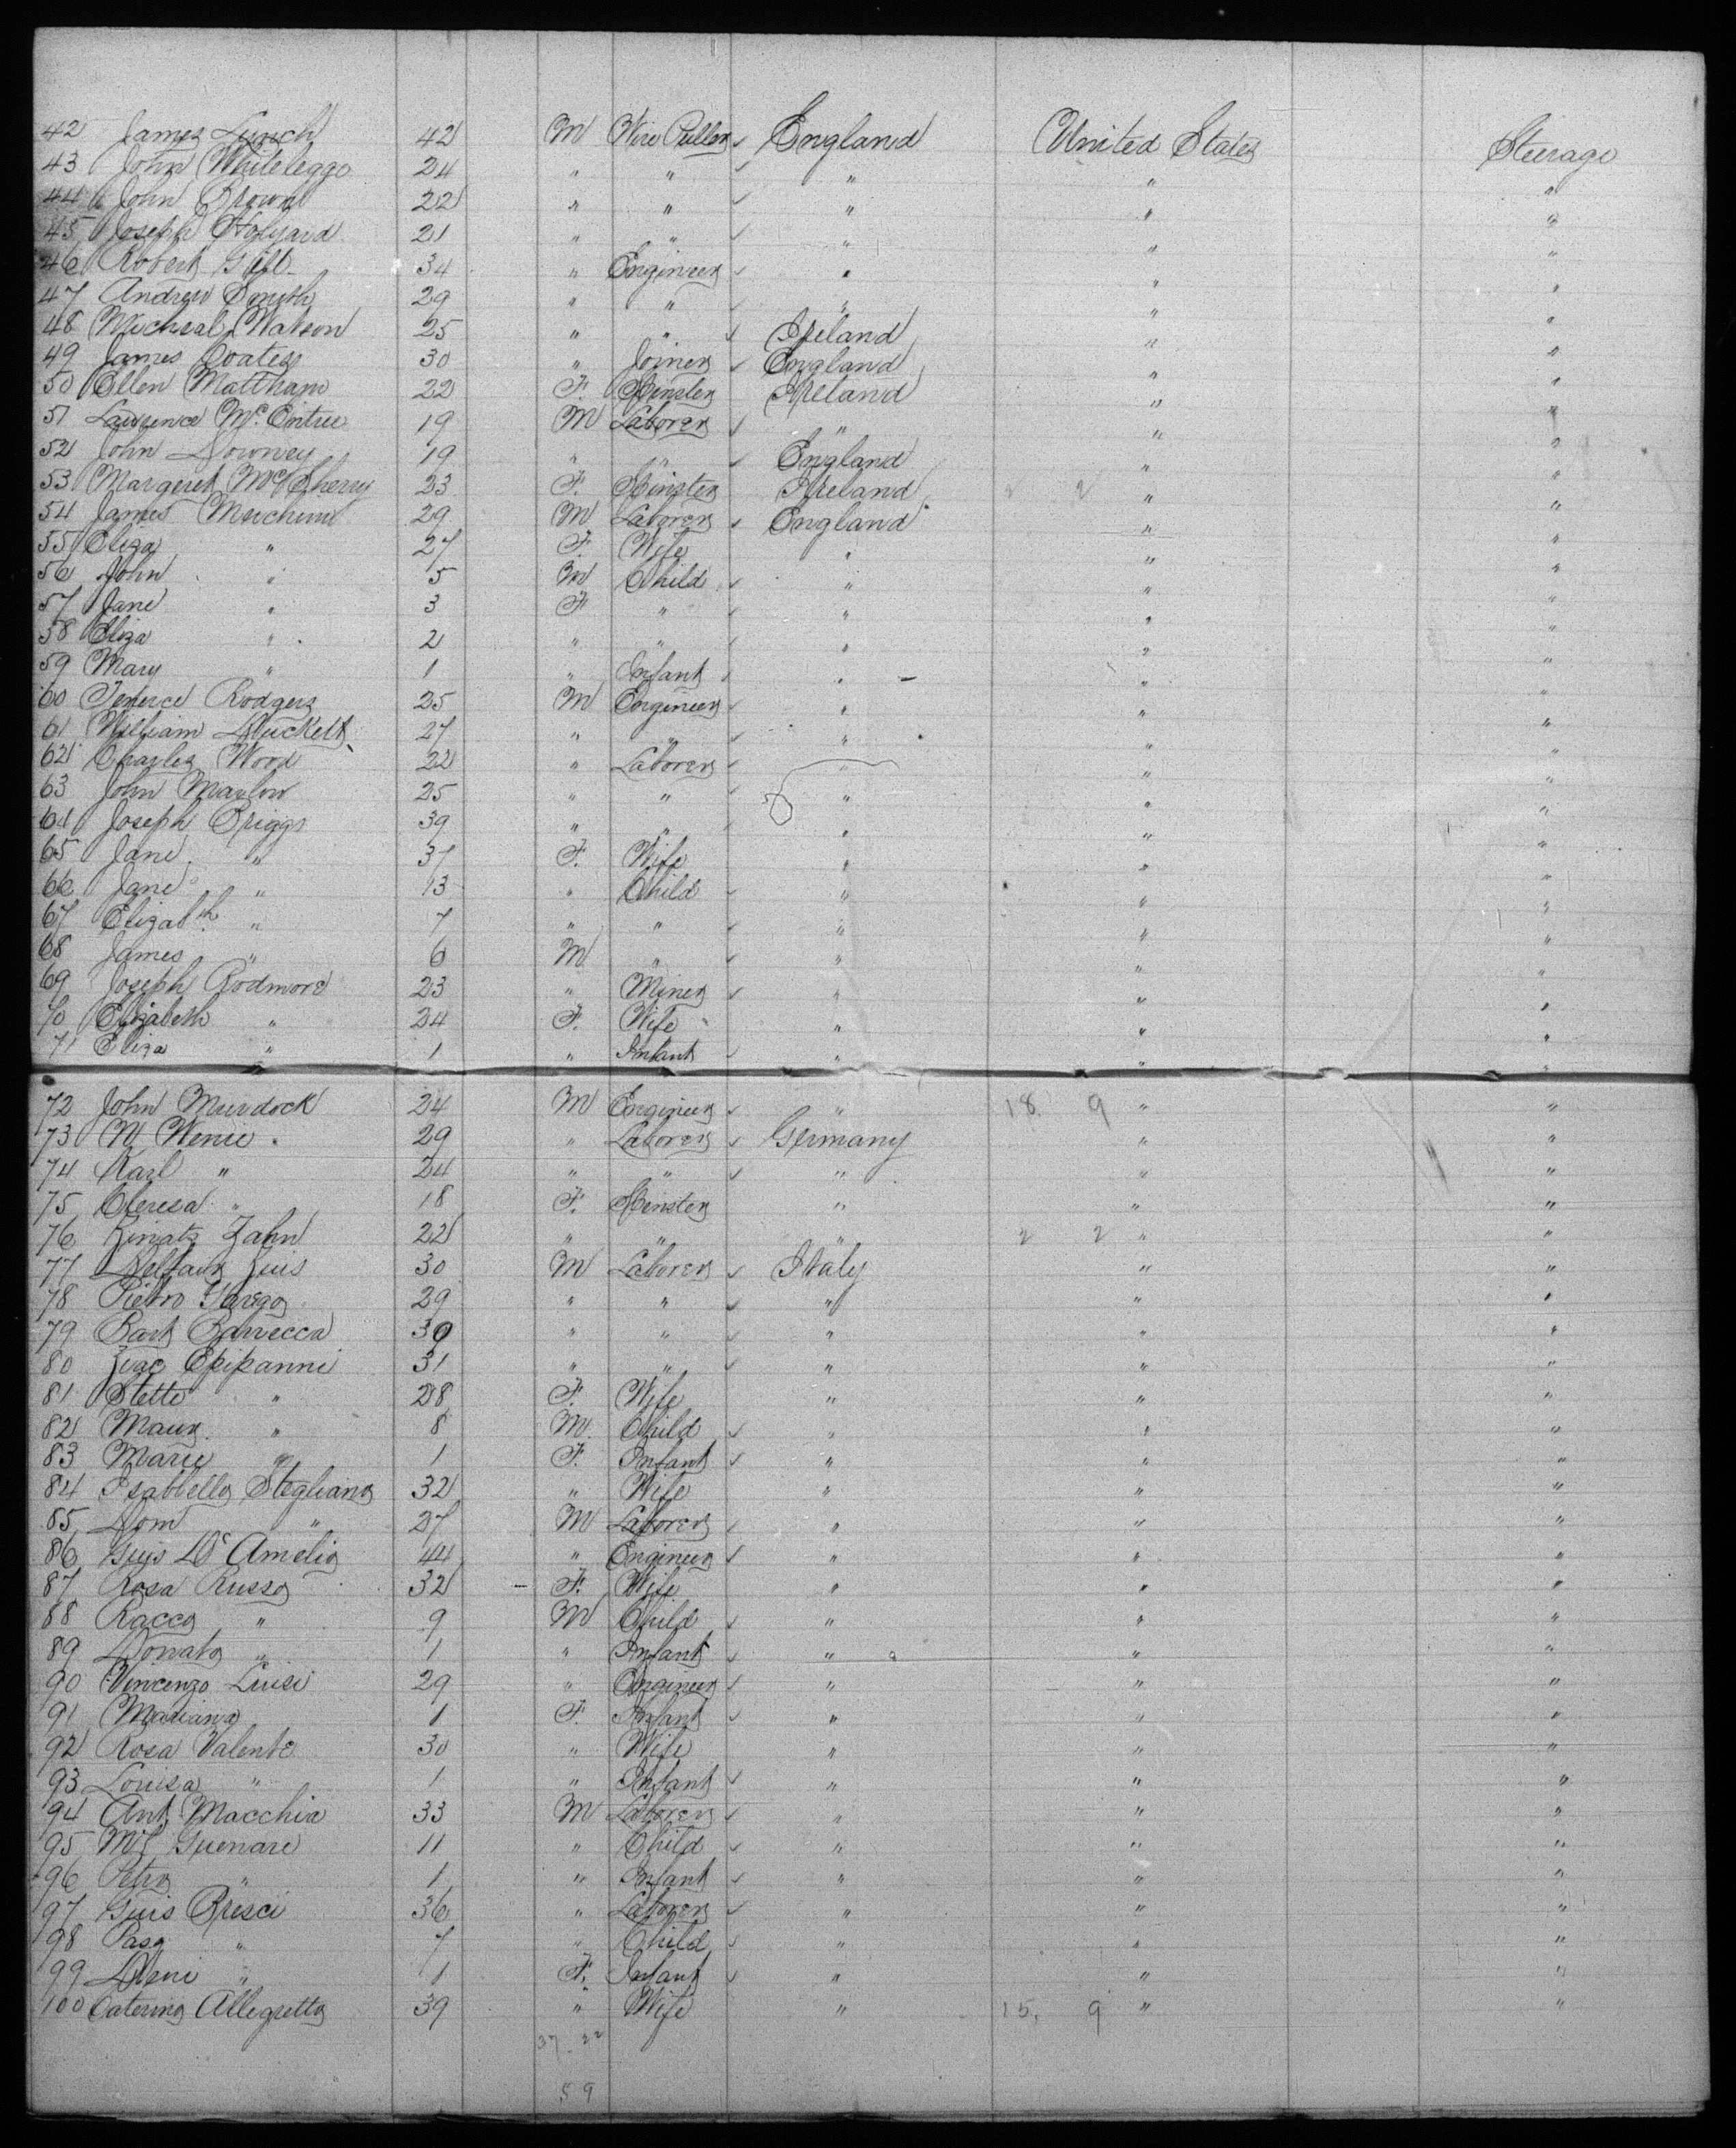 42 James Lynch 42 M Wire Puller ✓ England United States Steerage
43 John Whitelegge 24 " " ✓ " " "
44 John Brown 22 " " ✓ " " "
45 Joseph Holyard 21 " " ✓ " " "
46 Robert Gift 34 " Engineer ✓ " " "
47 Andrew Smyth 29 " " ✓ " " "
48 Micheal Watson 25 " " ✓ Ireland " "
49 James Coates 30 " Joiner ✓ England " "
50 Ellen Mattham 22 F. Spinster Ireland " "
51 Lawrence McEntree 19 M Laborer ✓ " " "
52 John Downey 19 " " ✓ England " "
53 Margaret McSherry 23 F. Spinster Ireland 2 2 " "
54 James 29 M Laborer ✓ England " "
55 Eliza " 27 F. Wife " " "
56 John " 5 M Child ✓ " " "
57 Jane " 3 F " ✓ " " "
58 Eliza " 2 " " ✓ " " "
59 Mary " 1 " Infant ✓ " " "
60 Terence Rodgers 25 M Engineer ✓ " " "
61 William Duckett 27 " " ✓ " " "
62 Charles Wood 22 " Laborer ✓ " " "
63 John Marlow 25 " " ✓ " " "
64 Joseph Briggs 39 " " ✓ " " "
65 Jane " 37 F. Wife " " "
66 Jane " 13 " Child ✓ " " "
67 Elizabth " 7 " " ✓ " " "
68 James " 6 M " ✓ " " "
69 Joseph Rodmore 23 " Miner ✓ " " "
70 Elizabeth " 24 F. Wife " " "
71 Eliza " 1 " Infant ✓ " " "
72 John Murdock 24 M Engineer ✓ " 18 9 " "
73 N Wenie 29 " Laborer ✓ Germany " "
74 Karl " 24 " " ✓ " " "
75 Cheresa " 18 F. Spinster " " "
76 Zahn 22 " " " 2 2 " "
77 30 M Laborer ✓ Italy " "
78 Pietro 29 " " ✓ " " "
79 Bart Barrecca 30 " " ✓ " " "
80 Epipanni 31 " " ✓ " " "
81 Stette " 28 F. Wife " " "
82 Maur. " 8 M. Child ✓ " " "
83 Marie " 1 F. Infant ✓ " " "
84 Isabbella Stegliano 32 " Wife " " "
85 Dom " 27 M Laborer ✓ " " "
86 D'Amelio 44 " Engineer ✓ " " "
87 Rosa Russo 32 F. Wife " " "
88 Racco " 9 M Child ✓ " " "
89 Donato " 1 " Infant ✓ " " "
90 Vincenzo Luisi 29 " Engineer ✓ " " "
91 Mariana 1 F. Infant ✓ " " "
92 Rosa Valente 30 " Wife " " "
93 Louisa " 1 " Infant ✓ " " "
94 Ant. Macchia 33 M Laborer ✓ " " "
95 Guenare 11 " Child ✓ " " "
96 Petro " 1 " Infant ✓ " " "
97 Guis Bresci 36 " Laborer ✓ " " "
98 Pasq " 7 " Child ✓ " " "
99 " 1 F. Infant ✓ " " "
100 Caterina Allegretto 39 " Wife " 15. 9 " "
37 22
59